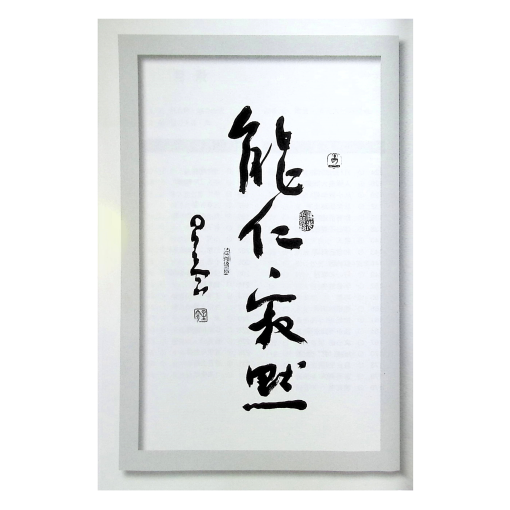 能仁、寂默